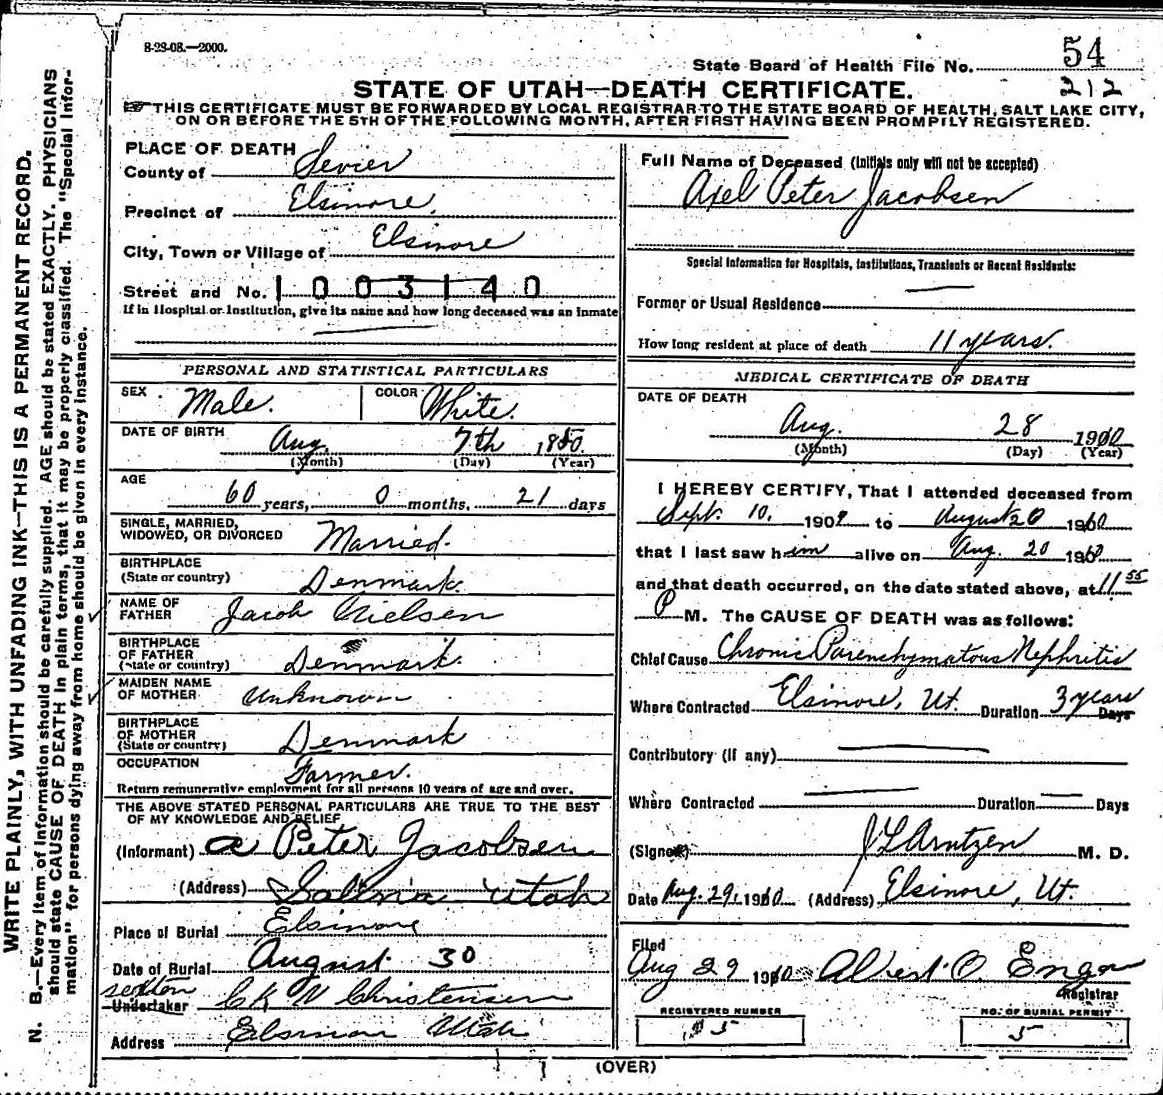 8-23-08.—2000.
State Board of Health File No. 54
212
STATE OF UTAH—DEATH CERTIFICATE.
THIS CERTIFICATE MUST BE FORWARDED BY LOCAL REGISTRAR TO THE STATE BOARD OF HEALTH, SALT LAKE CITY,
ON OR BEFORE THE 5TH OF THE FOLLOWING MONTH, AFTER FIRST HAVING BEEN PROMPILY REGISTERED.
WRITE PLAINLY, WITH UNFADING INK—THIS IS A PERMANENT RECORD.
N. B.—Every item of information should be carefully supplied. AGE should be stated EXACTLY. PHYSICIANS
should state CAUSE OF DEATH in plain terms, that it may be properly classified. The "Special Infor-
mation" for persons dying away from home should be given in every instance.
PLACE OF DEATH
County of Sevier
Precinct of Elsinore.
City, Town or Village of Elsinore
Street and No. 1003140
If in Hospital or Institution, give its name and how long deceased was an Inmate
PERSONAL AND STATISTICAL PARTICULARS
SEX Male. COLOR White.
DATE OF BIRTH Aug. 7th 1850.
(Month) (Day) (Year)
AGE
60 years, 0 months, 21 days
SINGLE, MARRIED,
WIDOWED, OR DIVORCED Married.
BIRTHPLACE
(State or country) Denmark.
NAME OF
FATHER Jacob Nielsen
BIRTHPLACE
OF FATHER
(State or country) Denmark.
MAIDEN NAME
OF MOTHER Unknown
BIRTHPLACE
OF MOTHER
(State or country) Denmark
OCCUPATION Farmer.
Return remunerative employment for all persons 10 years of age and over.
THE ABOVE STATED PERSONAL PARTICULARS ARE TRUE TO THE BEST
OF MY KNOWLEDGE AND BELIEF
(Informant) A Peter Jacobsen
(Address) Salina Utah
Place of Burial Elsinore
Date of Burial August 30
sexton
Undertaker C K N Christensen
Address Elsinore Utah
Full Name of Deceased (Initials only will not be accepted)
Axel Peter Jacobsen
Special Information for Hospitals, Institutions, Transients or Recent Residents:
Former or Usual Residence
How long resident at place of death 11 years.
MEDICAL CERTIFICATE OF DEATH
DATE OF DEATH
Aug. 28 1910
(Month) (Day) (Year)
I HEREBY CERTIFY, That I attended deceased from
Sept. 10. 1909 to August 20 1910
that I last saw him alive on Aug. 20 1910
and that death occurred, on the date stated above, at 11.55
P M. The CAUSE OF DEATH was as follows:
Chief Cause Chronic Parenchymatous Nephritis
Where Contracted Elsinore, Ut. Duration 3 years Days
Contributory (if any)
Where Contracted Duration Days
(Signed) J L Arntzen M. D.
Date Aug. 29, 1910 (Address) Elsinore, Ut.
Filed
Aug 29 1910 Albert O Enga
Registrar
REGISTERED NUMBER NO. OF BURIAL PERMIT
5 5
(OVER)